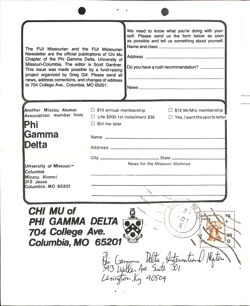 The FIJI Missourian and the FIJI Missourian
Newsletter are the official publications of Chi Mu
Chapter of the Phi Gamma Delta, University of
Missouri-Columbia. The editor is Scott Gardner.
This issue was made possible by a fund-raising
project organized by Greg Gill. Please send news,
address corrections, and changes of address
to 704 College Ave., Columbia, MO 65201.
We need to know what you're doing with your
life. Please send us the form below as soon
as possible and tell us something about yourself.
Name and class
Address
Do you have a rush recommendation?
News
Another Mizzou Alumni
Association member from
Phi
Gamma
Delta
University of Missouri-
Columbia
Mizzou Alumni
312 Jesse
Columbia, MO 65201
$10 annual membership
$12 Mr/Mrs membership
Life $200-1st installment $38
Yes, I want the sports letter
Bill me later
Name
Address
City
State
News for the Missouri Alumnus
CHI MU of
PHI GAMMA DELTA
704 College Ave.
Columbia, MO 65201
Phi Gamma Delta International Hqtrs
Ave Suite 301
Lexington, Ky 40504